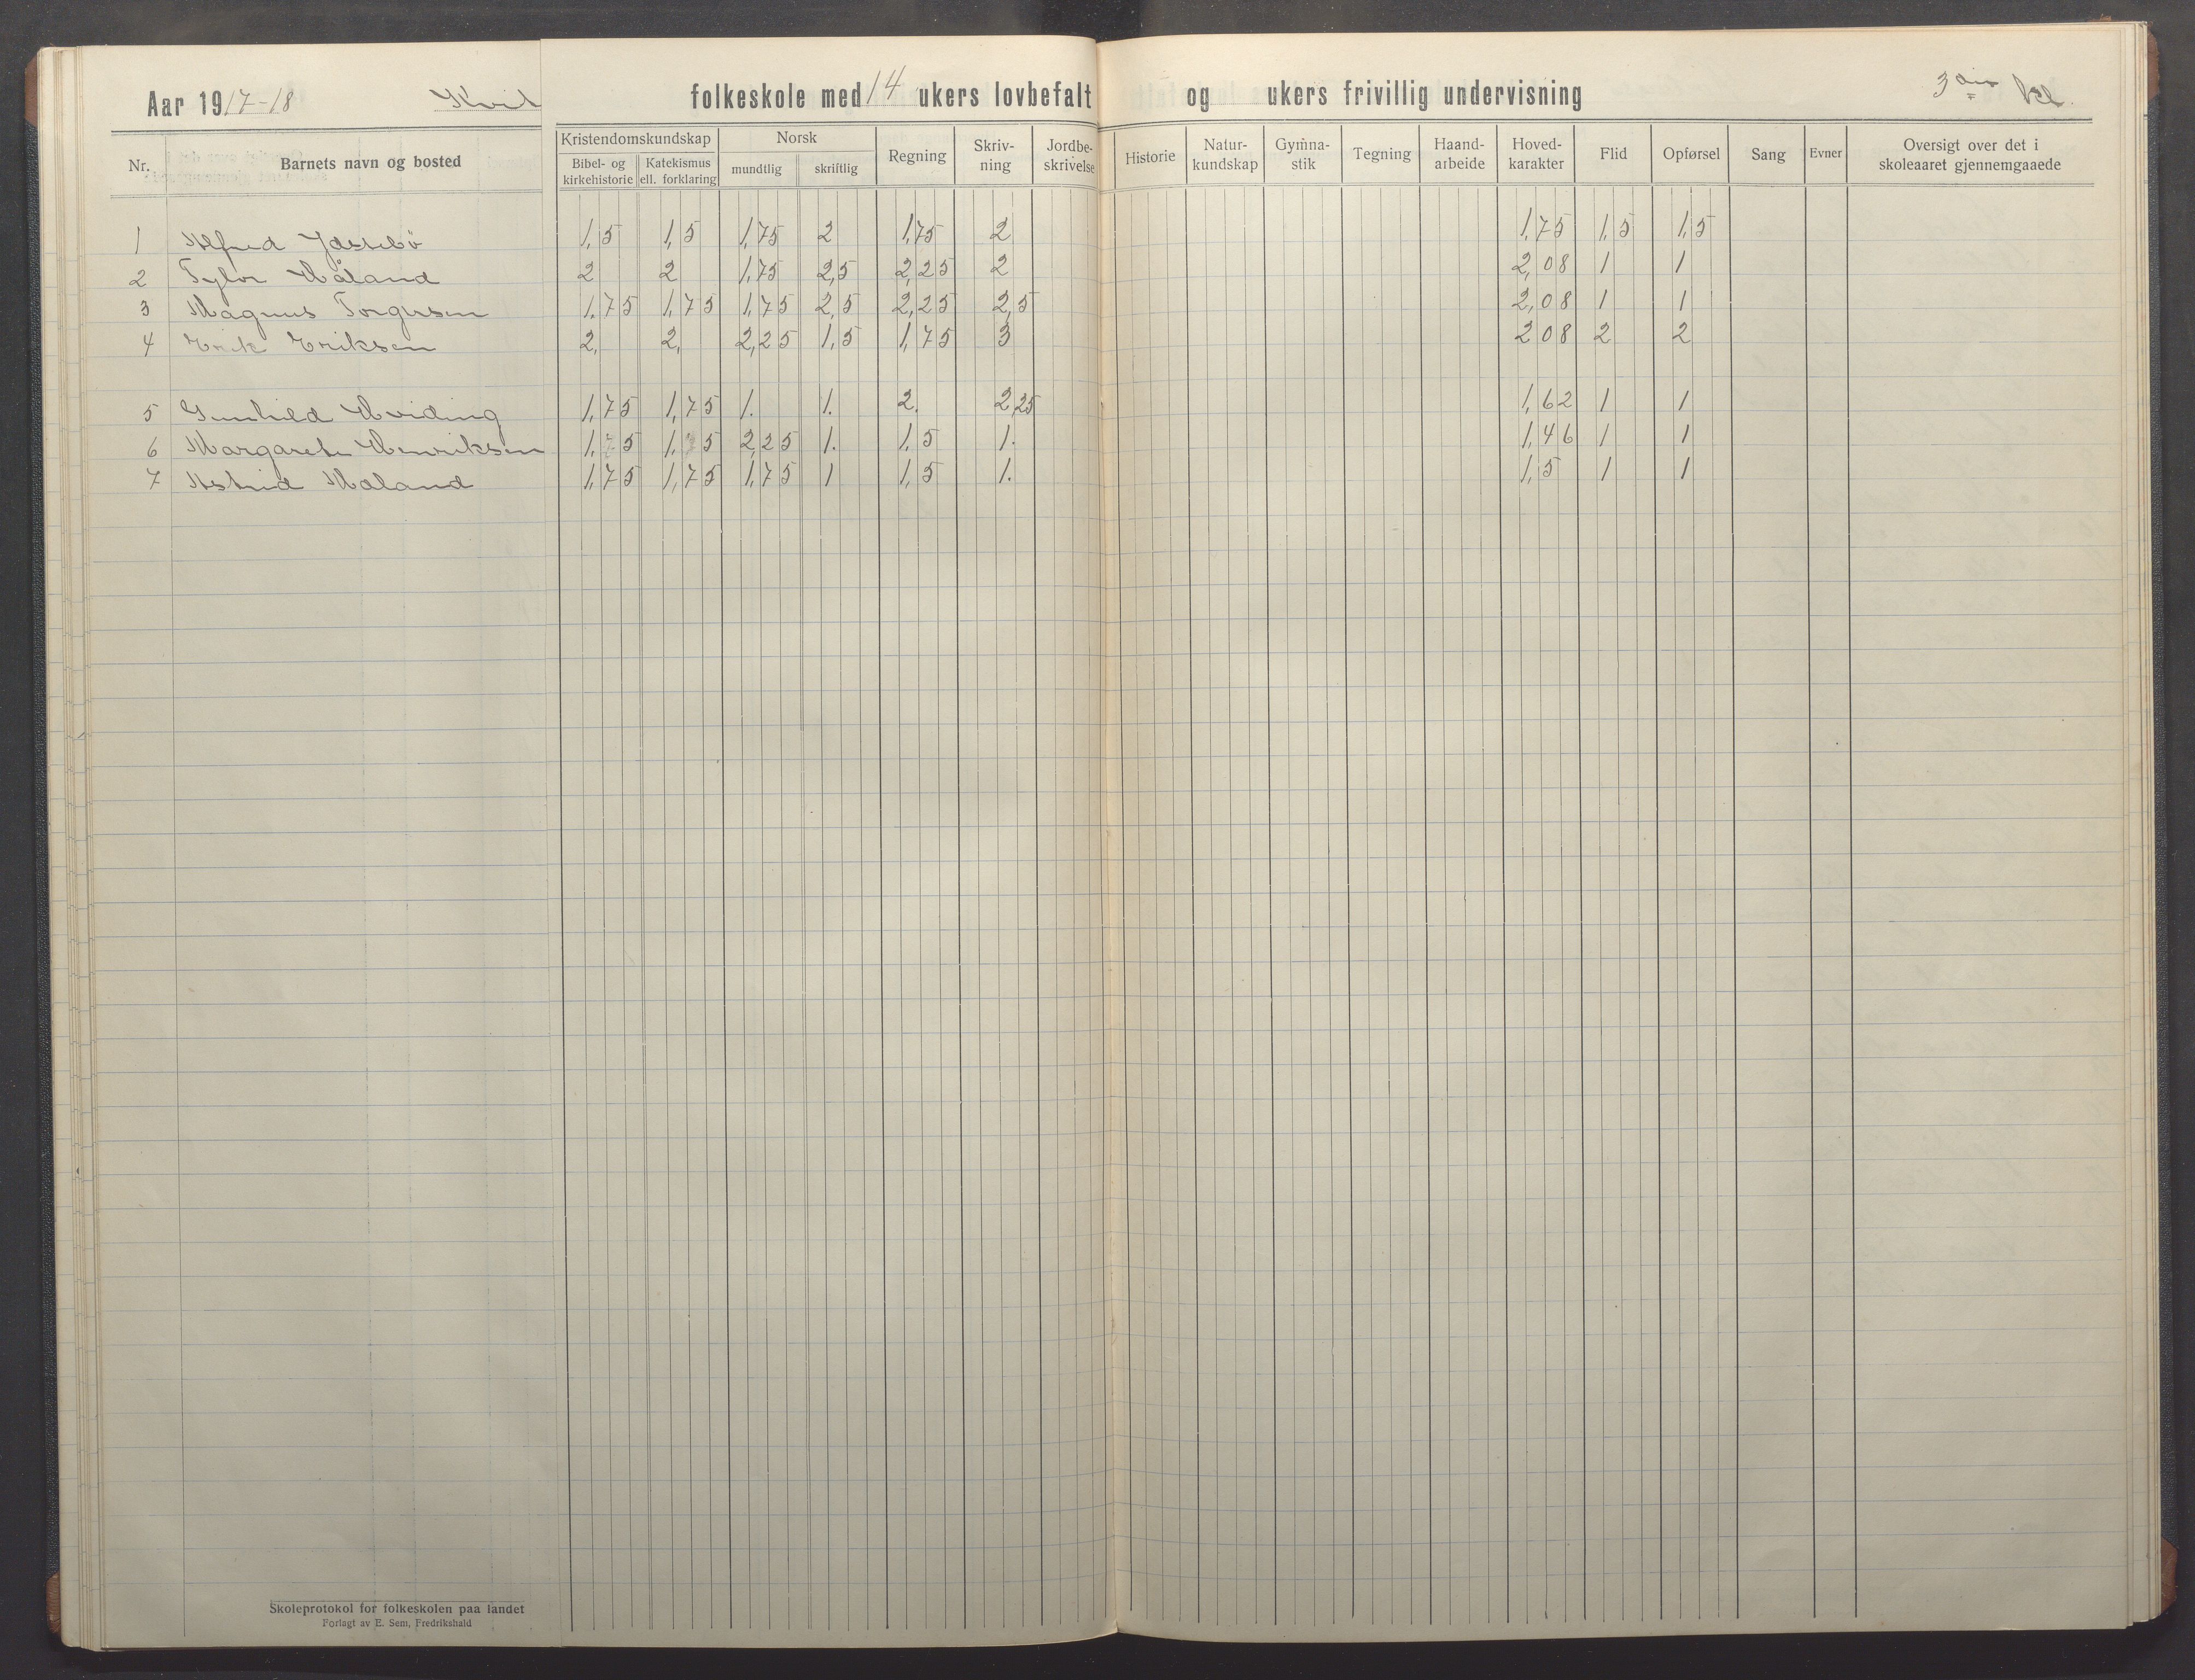 Aar 1917-18 folkeskole med 14 ukers lovbefalt og ukers frivillig undervisning 3 kl.
Nr. Barnets navn og bosted Kristendomskundskap Norsk Regning Skriv-ning Jordbe-skrivelse Historie Natur-kundskap Gymna-stik Tegning Haand-arbeide Hoved-karakter Flid Opførsel Sang Evner Oversigt over det i skoleaaret gjennemgaaede
Bibel- og kirkehistorie Katekismus ell. forklaring mundtlig skriftlig
1 Alfred Ydstebö 1,5 1,5 1,75 2 1,75 2 1,75 1,5 1,5
2 Håland 2 2 1,75 2,5 2,25 2 2,08 1 1
3 Magnus Torgersen 1,75 1,75 1,75 2,5 2,25 2,5 2,08 1 1
4 Erik Eriksen 2, 2, 2,25 1,5 1,75 3 2 08 2 2
5 Gunhild Hviding 1,75 1,75 1. 1. 2. 2,25 1,62 1 1
6 Margarete Henriksen 1,75 1,75 2,25 1. 1,5 1. 1,46 1 1
7 Astrid Haland 1,75 1,75 1,75 1 1,5 1. 1,5 1 1
Skoleprotokol for folkeskolen paa landet
Forlagt av E. Sem, Fredrikshald